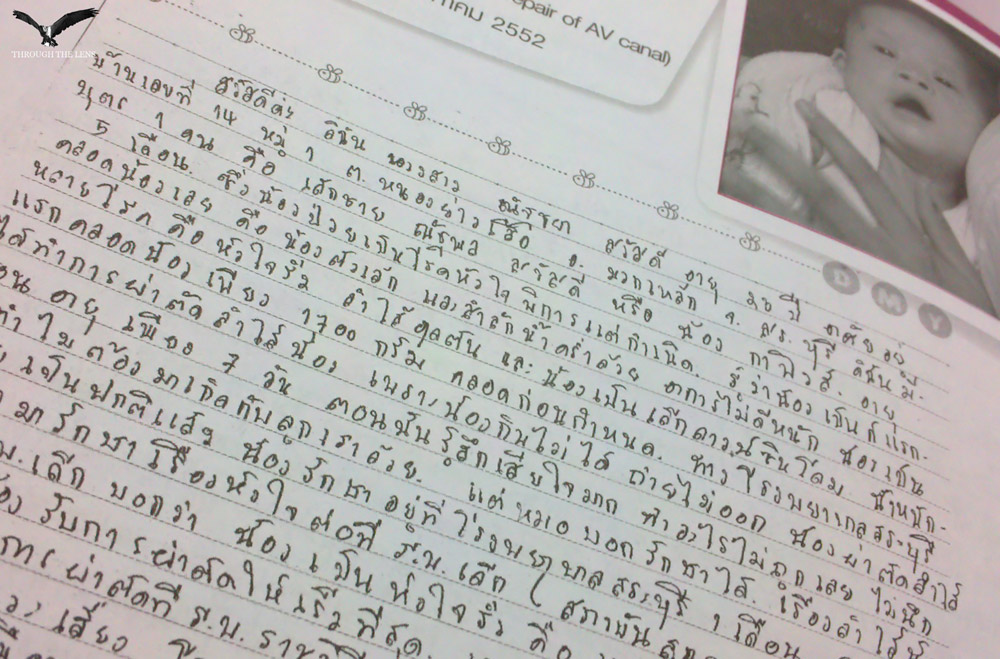 THROUGH THE LENS
epair of AV canal)
าคม 2552
D M Y
สวัสดีค่ะ ดิฉัน นางสาว ณัชชยา สวัสดี อายุ ปี อาศัยอยู่
บ้านเลขที่ 14 หมู่ 1 ต. หนองย่างเสือ อ. มวกเหล็ก จ. สระบุรี ดิฉันมี
บุตร 1 คน คือ เด็กชาย ณัฐพล สวัสดี หรือ น้อง กาฟิวส์ อายุ
5 เดือน. ซึ่งน้องป่วยเป็นโรคหัวใจพิการแต่กำเนิด. รู้ว่าน้องเป็นก็แรก-
คลอดน้องเลย คือ น้องตัวเล็ก และสำลักน้ำคร่ำด้วย อาการไม่ดีหนัก น้องเป็น
หลายโรค คือ หัวใจรั่ว ลำไส้อุดตัน และน้องเป็นเด็กดาวน์ซินโดม น้ำหนัก-
แรกคลอดน้อง เพียง 1700 กรัม คลอดก่อนกำหนด. ทางโรงพยาบาลสระบุรี
ได้ทำการผ่าตัดลำไส้น้อง เพราะน้องกินไม่ได้ ถ่ายไม่ออก น้องผ่าตัดลำไส้
อายุ เพียง 7 วัน ตอนนั้นรู้สึกเสียใจมาก ทำอะไรไม่ถูกเลย ไม่นึก
ทำไมต้องมาเกิดกับลูกเราด้วย. แต่หมอบอกรักษาได้ เรื่องลำไส้
เป็นปกติแล้ว น้องรักษาอยู่ที่โรงพยาบาลสระบุรี 1 เดือน
มารักษาเรื่องหัวใจต่อที่ รพ. เด็ก (สถาบัน
เด็ก บอกว่า น้องเป็นหัวใจรั่ว คือ
รับการผ่าตัดให้เร็วที่สุด.
การผ่าตัดที่ ร.พ.
เสี่ยง